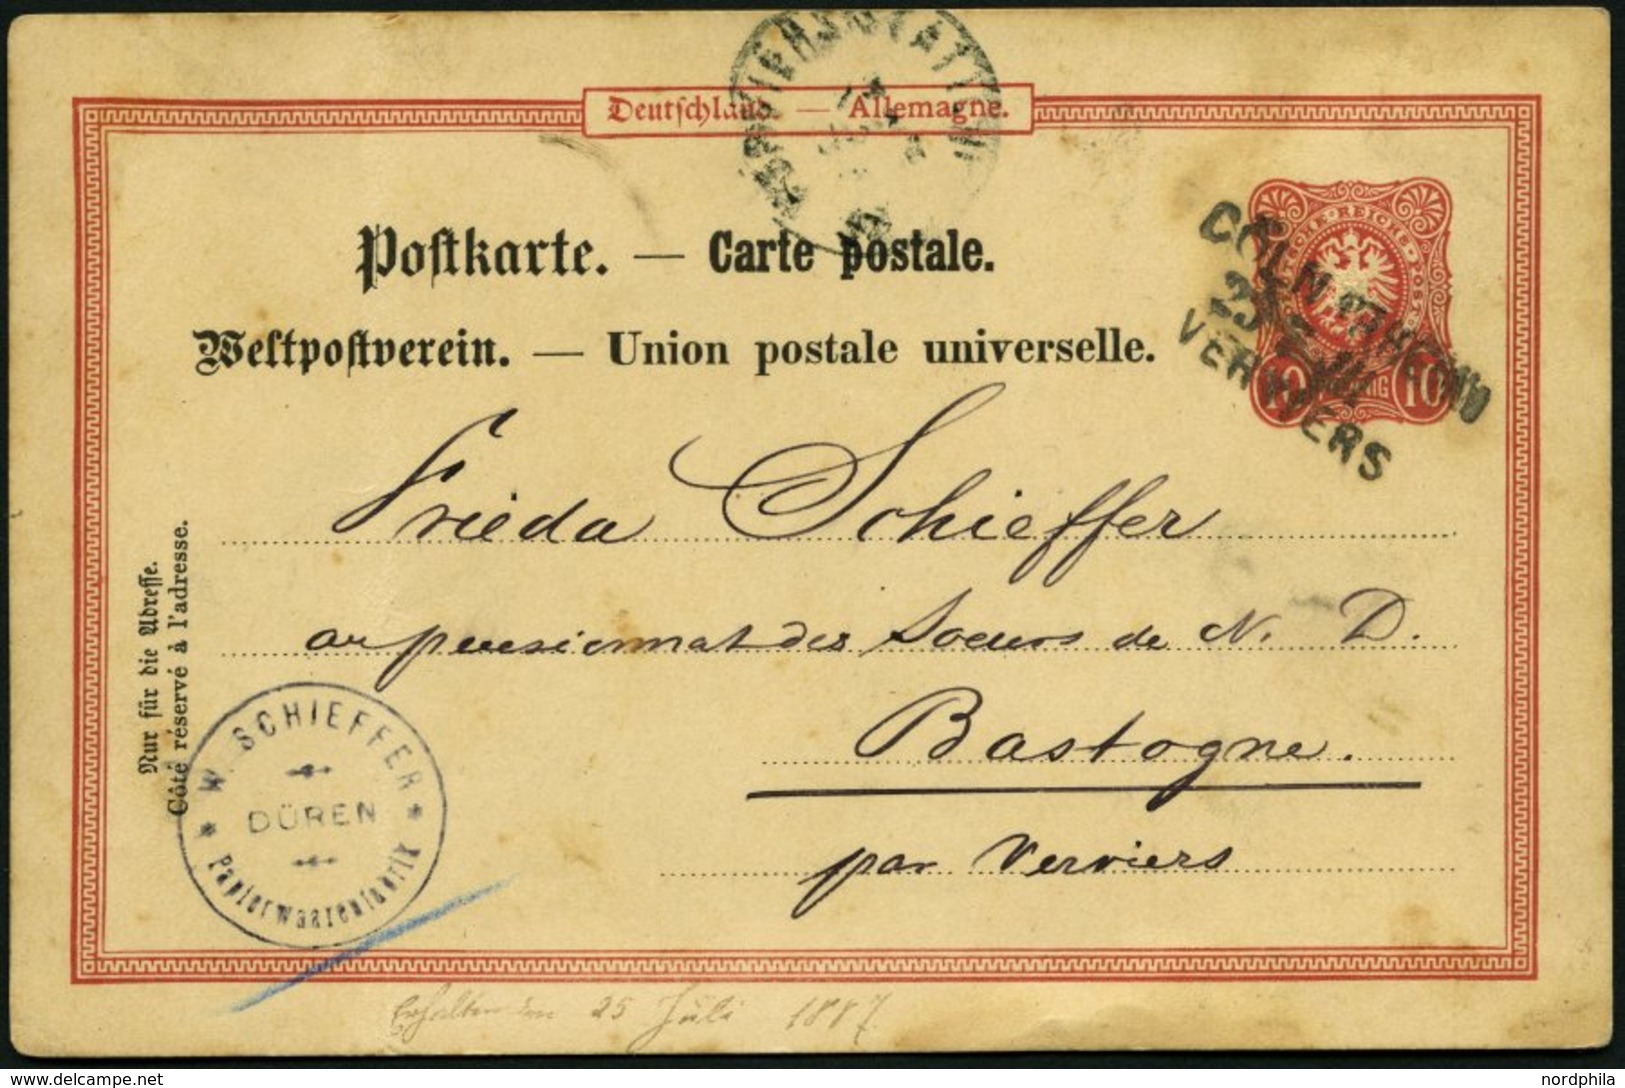 Deutschland — Allemagne.
Postkarte. — Carte postale.
Weltpostverein. — Union postale universelle.
DEUTSCHE REICHS-POST
10 PFENNIG 10
CÖLN
VERVIERS
Frieda Schieffer
au pensionnat des Soeurs de N. D.
Bastogne.
par Verviers
Nur für die Adresse.
Côté réservé à l'adresse.
W. SCHIEFFER
DÜREN
Papierwaarenfabrik
Erhalten den 25 Juli 1887
nordphila